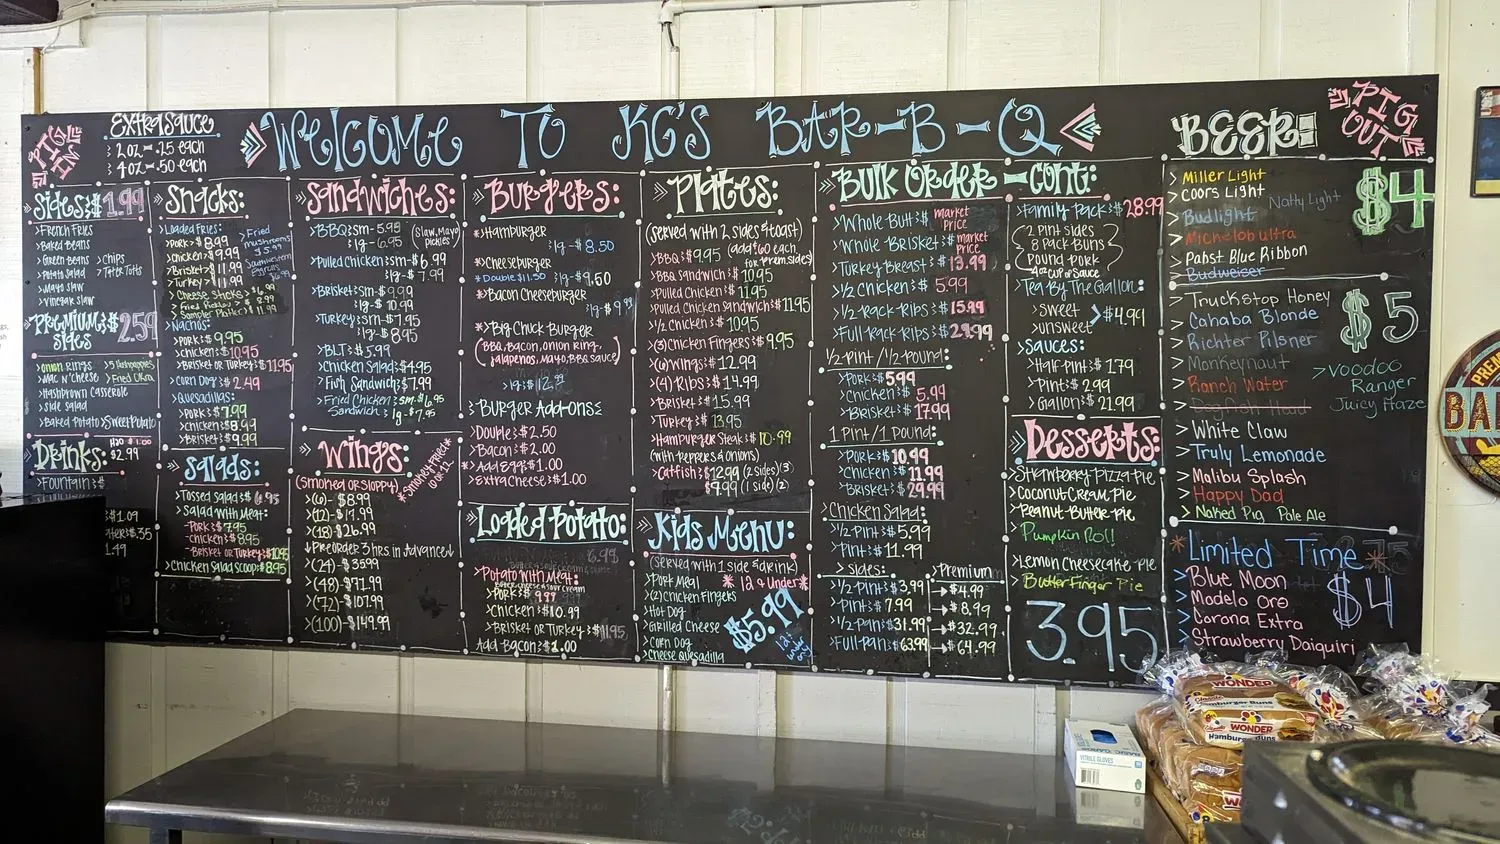 PIG IN
EXTRA SAUCE
2 oz - .25 each
4 oz - .50 each
Welcome To KG's Bar-B-Q
BEER:
PIG OUT
Sides: $1.99
>French Fries
>Baked Beans
>Green Beans >Chips
>Potato Salad >Tater Totts
>Mayo Slaw
>Vinegar Slaw
Premium: $2.59
Sides
>Onion Rings
>Mac N' Cheese >Fried Okra
>Hashbrown Casserole
>Side Salad
>Baked Potato >Sweet Potato
H2O $1.00
Drinks: $2.99
>Fountain:
$1.09
1.49
Snacks:
Loaded Fries:
>Pork: $8.99
>Chicken: $9.99
>Brisket: $11.99
>Turkey: $11.99
>Fried mushrooms $5.99
>Cheese Sticks: $6.99
>Sampler Platter: $11.99
Nachos:
>Pork: $9.95
>Chicken: $10.95
>Brisket or Turkey: $11.95
>Corn Dog: $2.49
Quesadillas:
>Pork: $7.99
>Chicken: $8.99
>Brisket: $9.99
Salads:
>Tossed Salad: $6.95
>Salad with Meat:
-Pork: $7.95
-Chicken: $8.95
-Brisket or Turkey: $10.95
>Chicken Salad Scoop: $8.95
Sandwiches:
>BBQ: sm- 5.95 (Slaw, Mayo, Pickles)
lg- 6.95
>Pulled Chicken: sm- $6.99
lg- $7.99
>Brisket: sm- $9.99
lg- $10.99
>Turkey: sm- $7.95
lg- $8.95
>BLT: $5.99
>Chicken Salad: $4.95
>Fish Sandwich: $7.99
>Fried Chicken: sm- $6.95
Sandwich lg- $7.95
Wings:
(Smoked or Sloppy)
>(6)- $8.99
>(12)- $17.99
>(18)- $26.99
↓Preorder 3 hrs in Advance↓
>(24)- $35.99
>(48)- $71.99
>(72)- $107.99
>(100)- $149.99
Burgers:
*Hamburger
lg- $8.50
*Cheeseburger
*Double $11.50 lg- $9.50
*Bacon Cheeseburger
*Big Chuck Burger
(BBQ, Bacon, Onion Ring, Jalapenos, Mayo, BBQ Sauce)
>Burger Add-ons:
>Double: $2.50
>Bacon: $2.00
>Add Egg: $1.00
>Extra Cheese: $1.00
Loaded Potato:
>Potato with Meat:
>Pork: $9.99
>Chicken: $10.99
>Brisket or Turkey: $11.95
Add Bacon: $1.00
Plates:
(Served with 2 sides & toast)
>BBQ: $9.95 (add $.60 each for prem. sides)
>BBQ Sandwich: $10.95
>Pulled Chicken: $11.95
>Pulled Chicken Sandwich: $11.95
>1/2 Chicken: $10.95
>(3) Chicken Fingers: $9.95
>(6) Wings: $12.99
>(4) Ribs: $14.99
>Brisket: $15.99
>Turkey: $13.95
>Hamburger Steak: $10.99
(with peppers & onions)
>Catfish: $12.99 (2 sides) (3)
$9.99 (1 side) (2)
Kids Menu:
(Served with 1 side & drink)
>Pork Meal * 12 & Under *
>(2) Chicken Fingers
>Hot Dog
>Grilled Cheese
>Corn Dog
>Cheese Quesadilla
$5.99
Bulk Order - Cont:
>Whole Butt: market price
>Whole Brisket: market price
>Turkey Breast: $13.99
>1/2 Chicken: $5.99
>1/2 Rack-Ribs: $15.99
>Full-Rack-Ribs: $29.99
1/2 Pint / 1/2 Pound:
>Pork: $5.99
>Chicken: $5.99
>Brisket: $17.99
1 Pint / 1 Pound:
>Pork: $10.99
>Chicken: $11.99
>Brisket: $29.99
>Chicken Salad:
>1/2 Pint: $5.99
>Pint: $11.99
>Sides: >Premium
>1/2 Pint: $3.99 → $4.99
>Pint: $7.99 → $8.99
>1/2 Pan: $31.99 → $32.99
>Full-Pan: $63.99 → $64.99
>Family Pack: $28.99
2 Pint Sides
8 Pack Buns
Pound Pork
4oz Cup of Sauce
>Tea By The Gallon:
>Sweet > $4.99
>Unsweet
>Sauces:
>Half Pint: $1.79
>Pint: $2.99
>Gallon: $21.99
Desserts:
>Strawberry Pizza Pie
>Coconut Cream Pie
>Peanut Butter Pie
>Pumpkin Roll
>Lemon Cheesecake Pie
>Butter Finger Pie
3.95
>Miller Light
>Coors Light
>Budlight Natty Light
>Michelob ultra
>Pabst Blue Ribbon
>Budweiser
$4
>Truckstop Honey
>Cahaba Blonde
>Richter Pilsner
>Monkeynaut
>Ranch Water
>Dogfish Head
>White Claw
>Truly Lemonade
>Malibu Splash
>Happy Dad
>Naked Pig Pale Ale
$5
>Voodoo Ranger Juicy Haze
*Limited Time*
>Blue Moon
>Modelo Oro
>Corona Extra
>Strawberry Daiquiri
$4
WONDER
Classic Hamburger Buns
WONDER
Hamburger Buns
NITRILE GLOVES